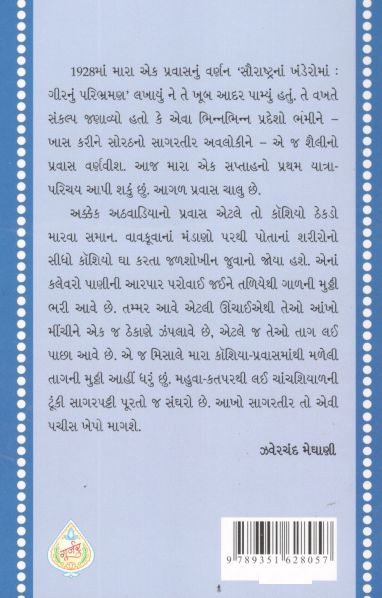 1928માં મારા એક પ્રવાસનું વર્ણન ‘સૌરાષ્ટ્રનાં ખંડેરોમાં :
ગીરનું પરિભ્રમણ’ લખાયું ને તે ખૂબ આદર પામ્યું હતું. તે વખતે
સંકલ્પ જણાવ્યો હતો કે એવા ભિન્નભિન્ન પ્રદેશો ભમીને –
ખાસ કરીને સોરઠનો સાગરતીર અવલોકીને – એ જ શૈલીનો
પ્રવાસ વર્ણવીશ. આજ મારા એક સપ્તાહનો પ્રથમ યાત્રા-
પરિચય આપી શકું છું. આગળ પ્રવાસ ચાલુ છે.
અક્કેક અઠવાડિયાનો પ્રવાસ એટલે તો કૉશિયો ઠેકડો
મારવા સમાન. વાવકૂવાનાં મંડાણો પરથી પોતાનાં શરીરોનો
સીધો કૉશિયો ઘા કરતા જળશોખીન જુવાનો જોયા હશે. એનાં
કલેવરો પાણીની આરપાર પરોવાઈ જઈને તળિયેથી ગાળની મુઠ્ઠી
ભરી આવે છે. તમ્મર આવે એટલી ઊંચાઈએથી તેઓ આંખો
મીંચીને એક જ ઠેકાણે ઝંપલાવે છે, એટલે જ તેઓ તાગ લઈ
પાછા આવે છે. એ જ મિસાલે મારા કૉશિયા-પ્રવાસમાંથી મળેલી
તાગની મુઠ્ઠી આહીં ધરું છું. મહુવા-કતપરથી લઈ ચાંચશિયાળની
ટૂંકી સાગરપટ્ટી પૂરતો જ સંઘરો છે. આખો સાગરતીર તો એવી
પચીસ ખેપો માગશે.
ઝવેરચંદ મેઘાણી
ગૂર્જર
9 789351 628057